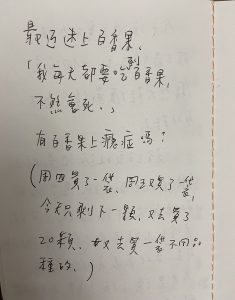 最近迷上百香果、
「我每天都要吃到百香果,
不然會死.」
有百香果上癮症嗎?
(周四買了一袋, 周五又買了一袋,
今天只剩下一顆, 又去買了
20顆, 又去買一袋不同品
種的.)